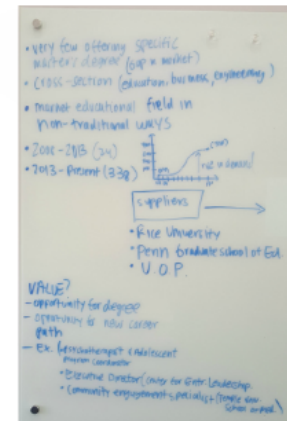 • very few offering specific
master's degree (gap in market)
• cross-section (education, business, engineering)
• market educational field in
non-traditional ways
• 2008-2013 (24)
• 2013-Present (338)
suppliers
• Rice University
• Penn Graduate school of Ed.
• U.O.P.
VALUE?
- opportunity for degree
- opportunity for new career
path
- Ex. Psychotherapist & Adolescent
Program coordinator
• Executive Director, Center for Leadership
• Community engagement specialist